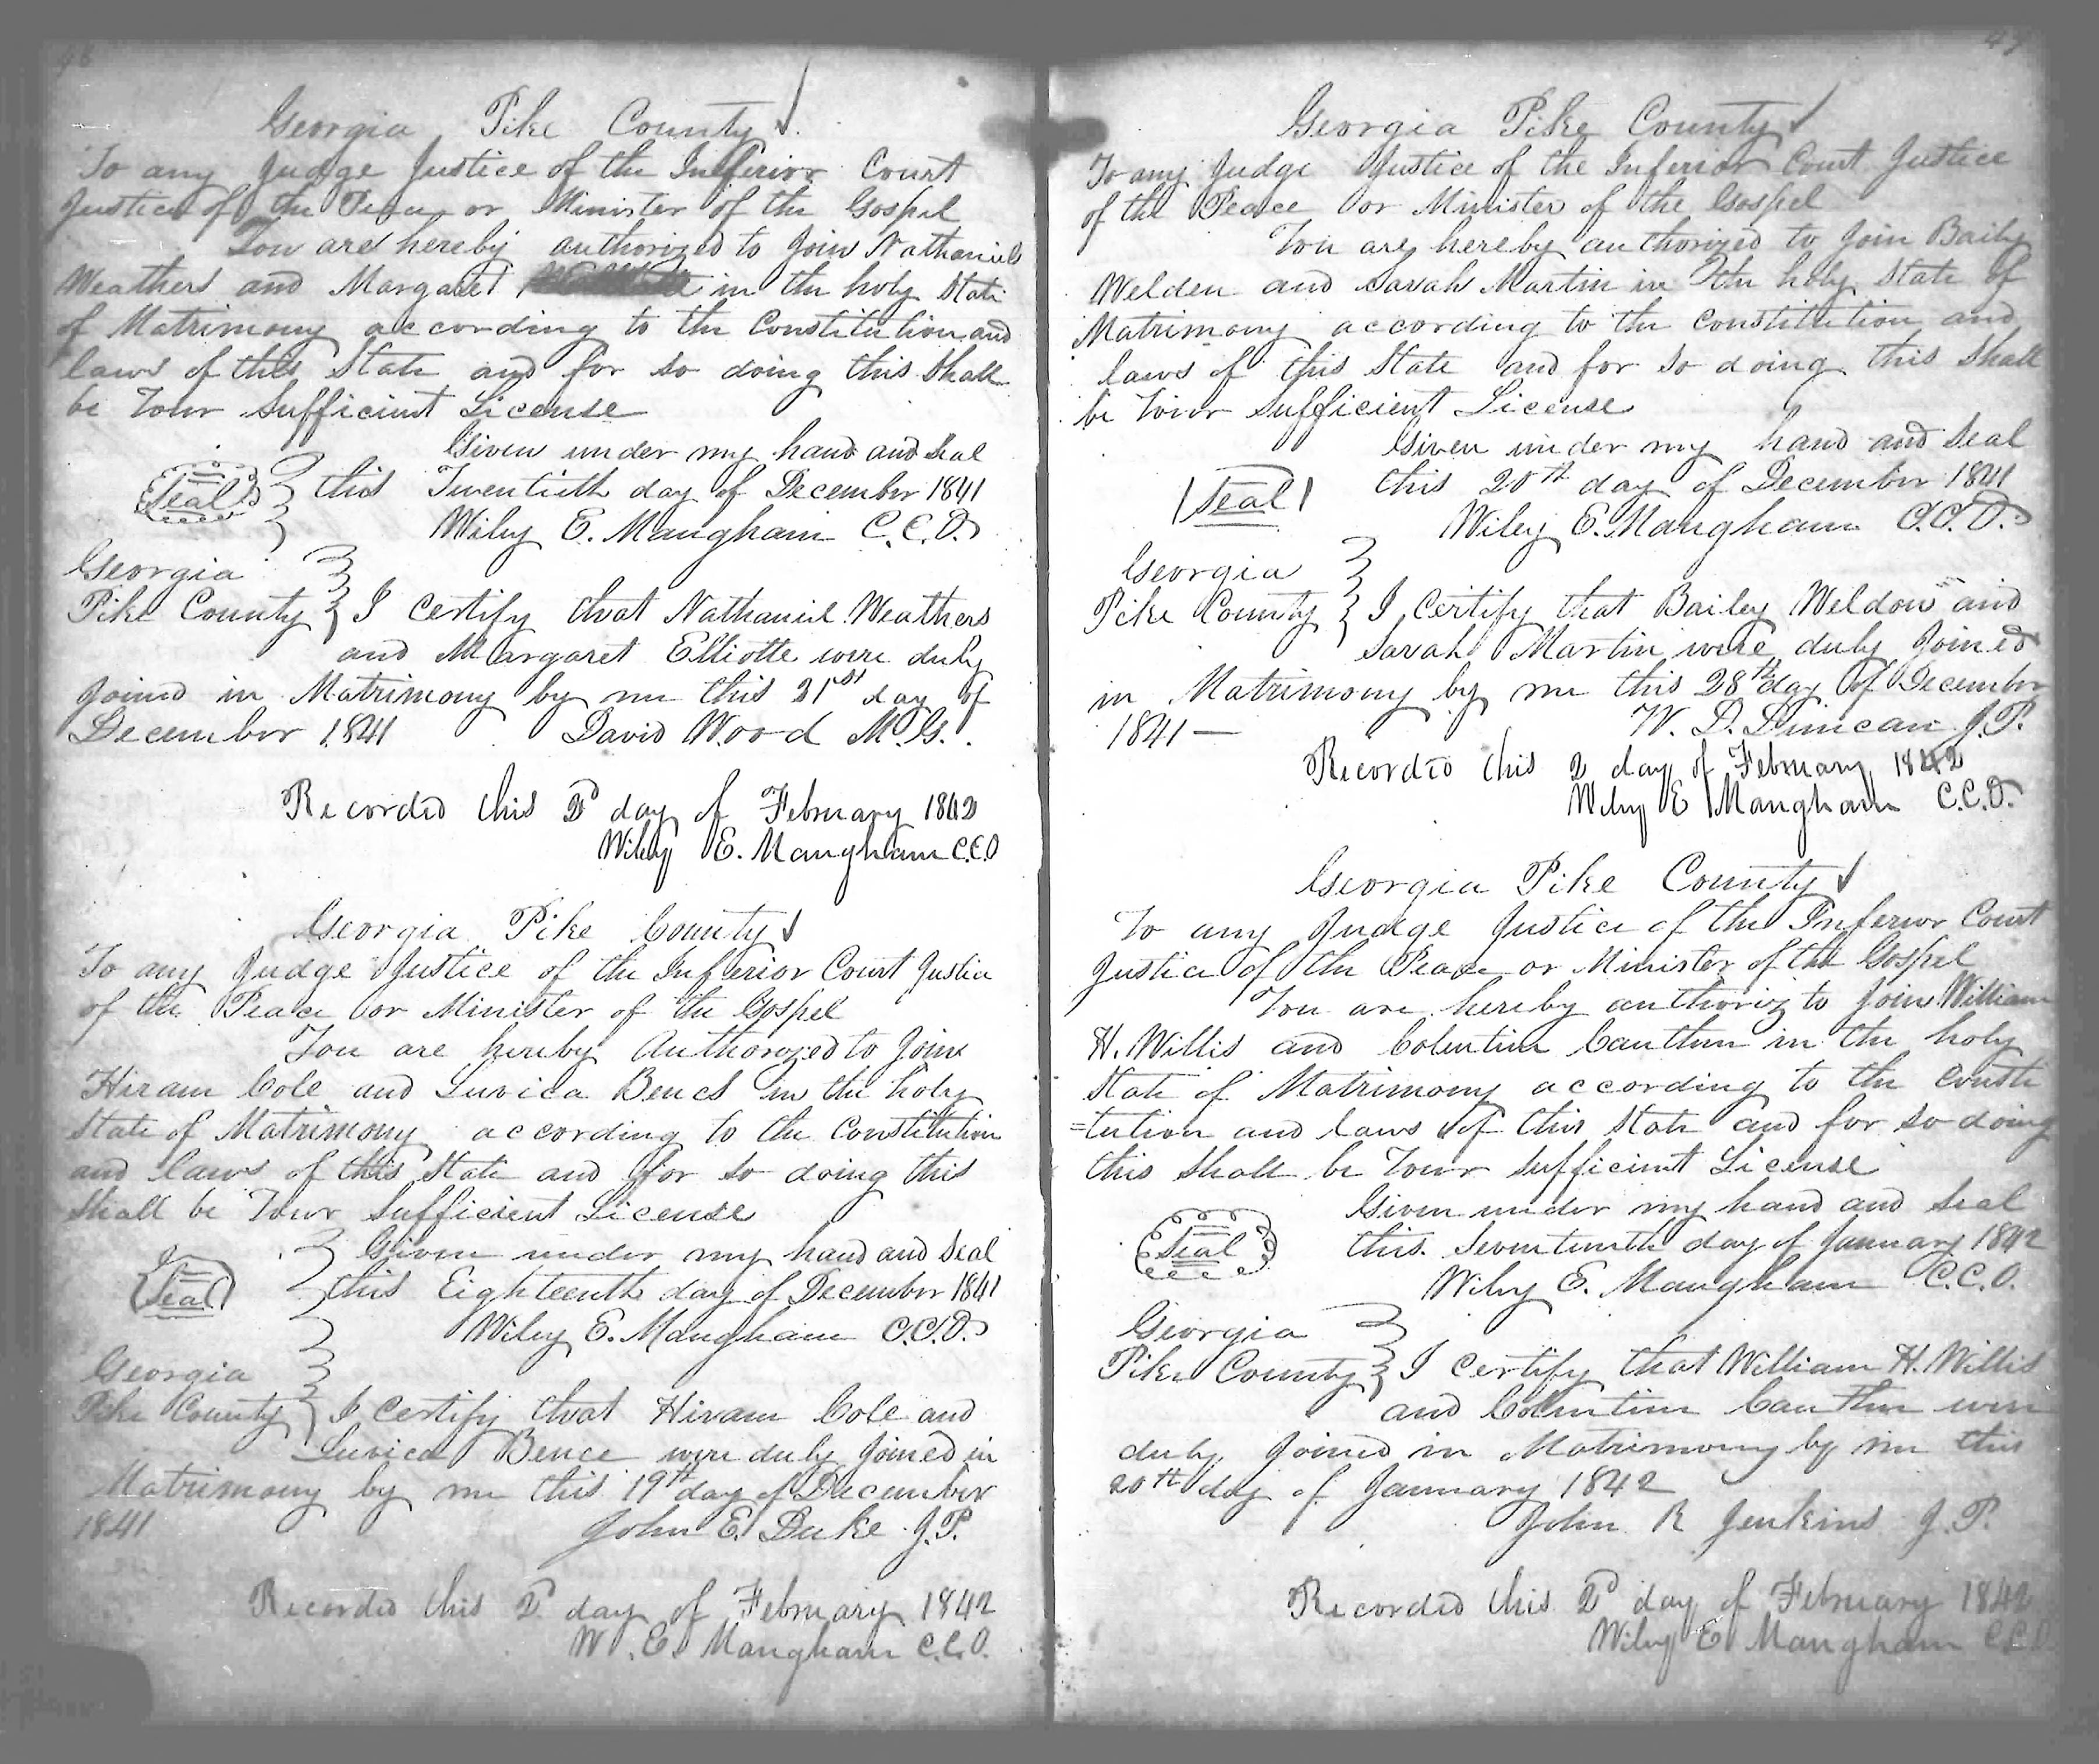 46
Georgia Pike County
To any Judge Justice of the Inferior Court
Justice of the Peace or Minister of the Gospel
You are hereby authorized to Join Nathaniel
Weathers and Margaret in the holy State
of Matrimony according to the Constitution and
laws of this State and for so doing this Shall
be Your Sufficient License
Given under my hand and Seal
Seal this Twentieth day of December 1841
Wiley E. Mangham C.C.O.
Georgia
Pike County I Certify that Nathaniel Weathers
and Margaret Elliotte were duly
Joined in Matrimony by me this 21st day of
December 1841 David Wood M.G.
Recorded this 2d day of February 1842
Wiley E. Mangham C.C.O
Georgia Pike County
To any Judge Justice of the Inferior Court Justice
of the Peace or Minister of the Gospel
You are hereby Authorized to Join
Hiram Cole and Luvica Bence in the holy
State of Matrimony according to the Constitution
and laws of this State and for so doing this
Shall be Your Sufficient License
Given under my hand and Seal
Seal this Eighteenth day of December 1841
Wiley E. Mangham C.C.O.
Georgia
Pike County I Certify that Hiram Cole and
Luvica Bence were duly Joined in
Matrimony by me this 19th day of December
1841 John E. Duke J.P.
Recorded this 2d day of February 1842
W. E. Mangham C.C.O.
47
Georgia Pike County
To any Judge Justice of the Inferior Court Justice
of the Peace or Minister of the Gospel
You are hereby authorized to Join Baily
Welden and Sarah Martin in the holy State of
Matrimony according to the Constitution and
laws of this State and for so doing this Shall
be Your Sufficient License
Given under my hand and Seal
Seal this 20th day of December 1841
Wiley E. Mangham C.C.O.
Georgia
Pike County I Certify that Bailey Weldon and
Sarah Martin were duly Joined
in Matrimony by me this 28th day of December
1841 — W. D. Duncan J.P.
Recorded this 2 day of February 1842
Wiley E Mangham C.C.O.
Georgia Pike County
To any Judge Justice of the Inferior Court
Justice of the Peace or Minister of the Gospel
You are hereby authoriz to Join William
H. Willis and in the holy
State of Matrimony according to the Consti
=tution and laws of this State and for so doing
this Shall be Your Sufficient License
Given under my hand and Seal
Seal this Seventeenth day of January 1842
Wiley E. Mangham C.C.O.
Georgia
Pike County I Certify that William H. Willis
and were
duly Joined in Matrimony by me this
20th day of January 1842
John R Jenkins J.P.
Recorded this 2d day of February 1842
Wiley E Mangham C.C.O